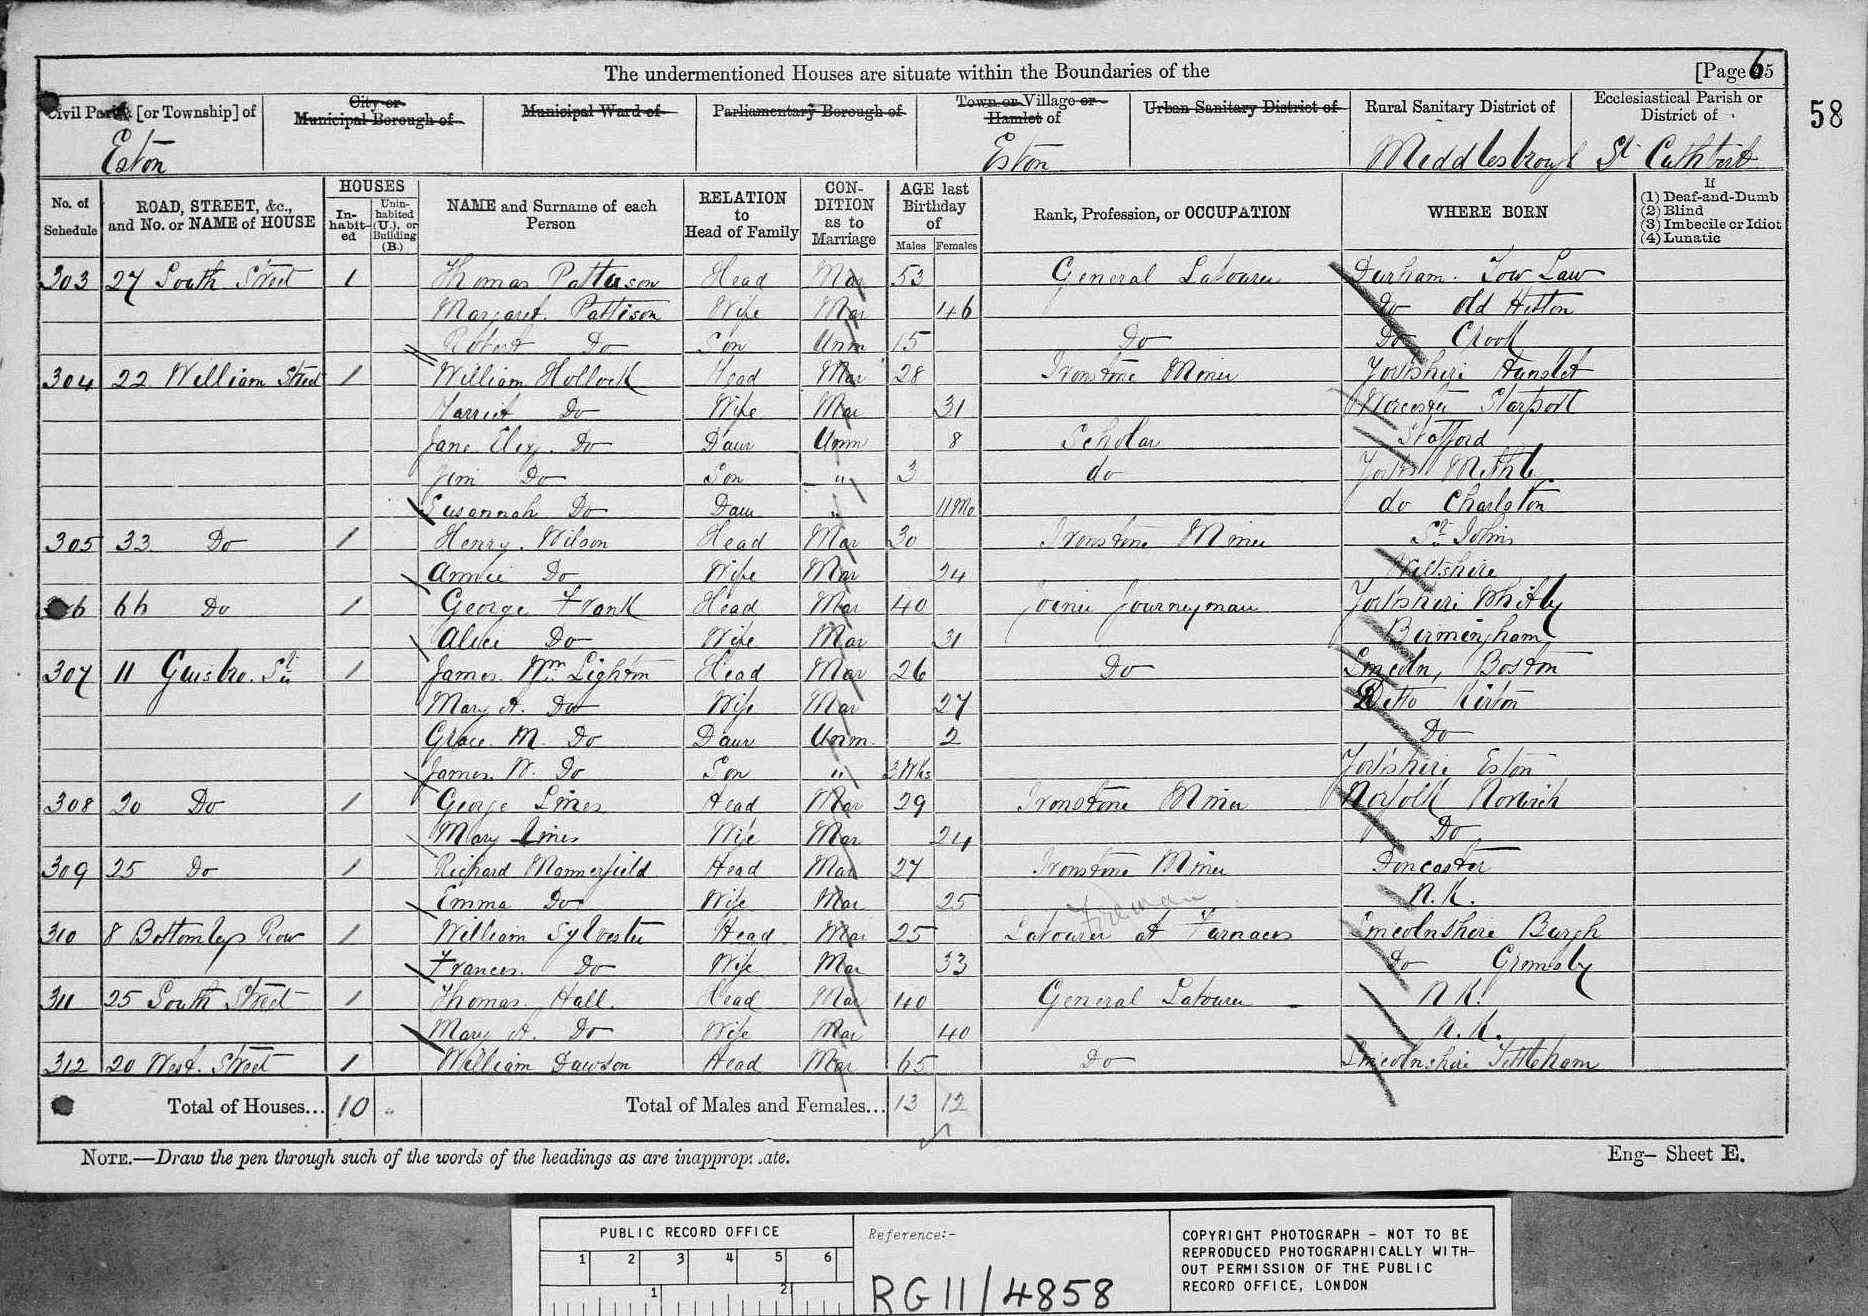 The undermentioned Houses are situate within the Boundaries of the [Page 65
58
Civil Parish [or Township] of
City or Municipal Borough of
Municipal Ward of
Parliamentary Borough of
Town or Village or Hamlet of
Urban Sanitary District of
Rural Sanitary District of
Ecclesiastical Parish or District of
Eston Eston Middlesbrough St Cuthberts
No. of Schedule
ROAD, STREET, &c., and No. or NAME of HOUSE
HOUSES
In-habit-ed
Unin-habited (U.), or Building (B.)
NAME and Surname of each Person
RELATION to Head of Family
CON-DITION as to Marriage
AGE last Birthday of
Males Females
Rank, Profession, or OCCUPATION
WHERE BORN
If
(1) Deaf-and-Dumb
(2) Blind
(3) Imbecile or Idiot
(4) Lunatic
303 27 South Street 1 Thomas Pattison Head Mar 53 General Labourer Durham Tow Law
Margaret Pattison Wife Mar 46 Do Old Hetton
Robert Do Son Unm 15 Do Do Crook
304 22 William Street 1 William Hollock Head Mar 28 Ironstone Miner Yorkshire Hunslet
Harriet Do Wife Mar 31 Worcester Starport
Jane Eliz. Do Daur Unm 8 Scholar Stafford
Jim Do Son " 3 do Yorks
Susannah Do Daur " 11 Mo do Charlston
305 33 Do 1 Henry Wilson Head Mar 30 Ironstone Miner St Johns
Annie Do Wife Mar 24 Wiltshire
306 66 Do 1 George Frank Head Mar 40 Joiner Journeyman Yorkshire Whitby
Alice Do Wife Mar 31 Birmingham
307 11 Guisbro. St 1 James Wm Lighton Head Mar 26 Do Lincoln, Boston
Mary A. Do Wife Mar 27 Ditto Kirton
Grace M. Do Daur Unm. 2 Do
James W. Do Son " 2 Wks Yorkshire Eston
308 20 Do 1 George Lines Head Mar 29 Ironstone Miner Norfolk Norwich
Mary Lines Wife Mar 24 Do
309 25 Do 1 Richard Mannerfield Head Mar 27 Ironstone Miner Doncaster
Emma Do Wife Mar 25 N.K.
Fireman
310 8 Bottomleys Row 1 William Sylvester Head Mar 25 Labourer at Furnaces Lincolnshire Burgh
Frances Do Wife Mar 33 Do Grimsby
311 25 South Street 1 Thomas Hall. Head Mar 40 General Labourer N.K.
Mary A. Do Wife Mar 40 N.K.
312 20 West. Street 1 William Dawson Head Mar 65 Do Lincolnshire Tettleham
Total of Houses... 10 Total of Males and Females... 13 12
NOTE.—Draw the pen through such of the words of the headings as are inappropriate.
Eng— Sheet E.
PUBLIC RECORD OFFICE
1 2 3 4 5 6
1 2
Reference:-
RG 11/4858
COPYRIGHT PHOTOGRAPH - NOT TO BE
REPRODUCED PHOTOGRAPHICALLY WITH-
OUT PERMISSION OF THE PUBLIC
RECORD OFFICE, LONDON